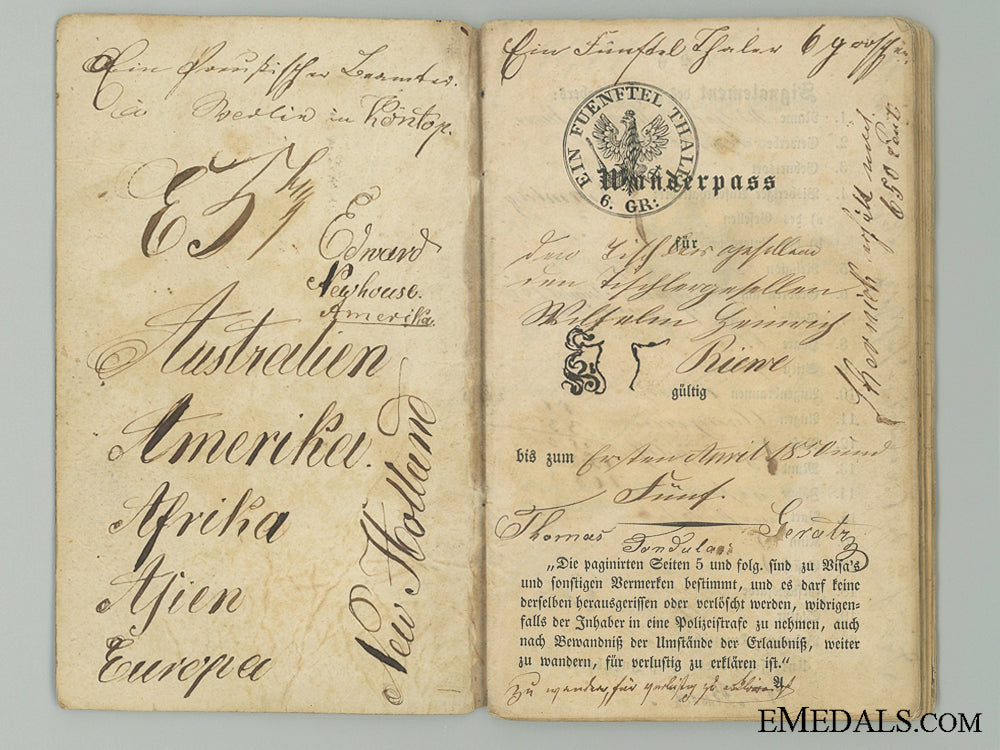 Ein Preußischer Beamter.
à Berlin in Köntop.
Edward
Newhouse.
Amerika.
Australien
Amerika.
Afrika
Asien
Europa
New Holland
Ein Fünftel Thaler 6 groschen
EIN FUENFTEL THALER
6. GR:
Wanderpass
für
den Tischlergesellen
den Tischlergesellen
Wilhelm Heinrich
Riewe
gültig
bis zum Ersten April 1850 und
Fünf.
Thomas
„Die paginirten Seiten 5 und folg. sind zu Visa's
und sonstigen Vermerken bestimmt, und es darf keine
derselben herausgerissen oder verlöscht werden, widrigen-
falls der Inhaber in eine Polizeistrafe zu nehmen, auch
nach Bewandniß der Umstände der Erlaubniß, weiter
zu wandern, für verlustig zu erklären ist.“
zu wandern, für verlustig zu
EMEDALS.COM